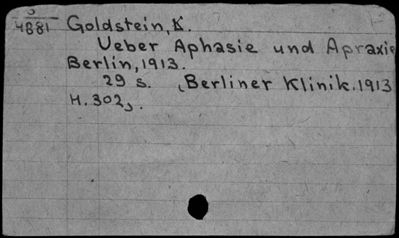 3
4881 Goldstein, K.
Ueber Aphasie und Apraxie
Berlin, 1913.
29 s. (Berliner Klinik. 1913
H. 302).